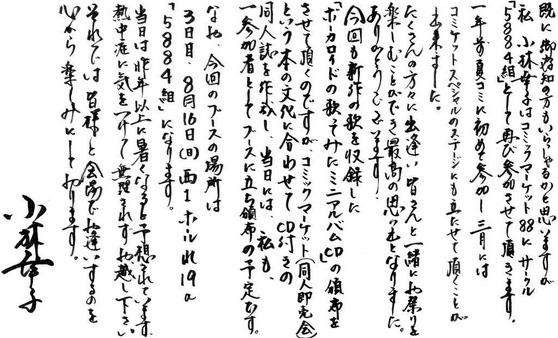 既に御存知の方もいらっしゃるかと思いますが
私、小林幸子はコミックマーケット88にサークル
「5884組」として再び参加させて頂きます。
一年前、夏コミに初めて参加し、三月には
コミケットスペシャルのステージにも立たせて頂くことが
出来ました。
たくさんの方々に出逢い、皆さんと一緒にお祭りを
楽しむことができ最高の思い出となりました。
ありがとうございます。
今回も新作の歌を収録した
「ボーカロイドの歌ってみたミニアルバムCD」の頒布を
させて頂くのですが、コミックマーケット(同人即売会)
という本の文化に合わせて、CD付きの
同人誌を作成し、当日には、私も、
一参加者としてブースに立ち頒布の予定です。
なお、今回のブースの場所は
3日目、8月16日(日)西1ホールれ19a
「5884組」になります。
当日は昨年以上に暑くなると予想されています。
熱中症に気をつけて無理されずお越し下さい。
それでは、皆様と会場でお逢いするのを
心から楽しみにしております。
小林幸子